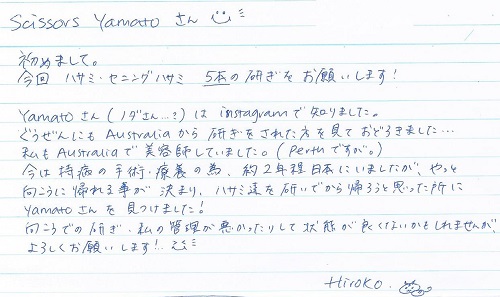 Scissors Yamato さん
初めまして。
今回 ハサミ・セニングハサミ 5本の研ぎをお願いします!
Yamatoさん (ノダさん…?) は instagramで知りました。
ぐうぜんにも Australiaから 研ぎをされた方を見ておどろきました…
私もAustraliaで美容師していました。(Perthですが。)
今は持病の手術・療養の為、約2年程日本にいましたが、やっと
向こうに帰れる事が決まり、ハサミ達を研いでから帰ろうと思った所に
Yamatoさんを見つけました!
向こうでの研ぎ・私の管理が悪かったりして状態が良くないかもしれませんが、
よろしくお願いします!
Hiroko.